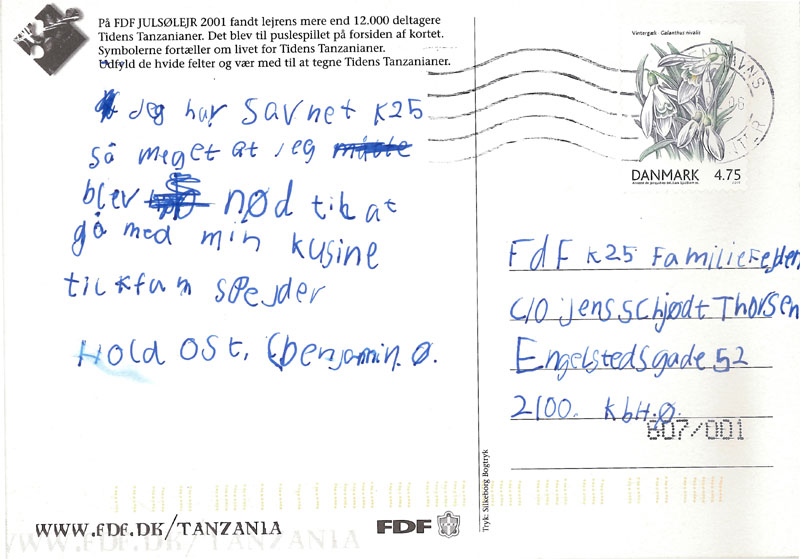 På FDF JULSØLEJR 2001 fandt lejrens mere end 12.000 deltagere
Tidens Tanzanianer. Det blev til puslespillet på forsiden af kortet.
Symbolerne fortæller om livet for Tidens Tanzanianer.
Udfyld de hvide felter og vær med til at tegne Tidens Tanzanianer.
Jeg har savnet K25
så meget at jeg
blev nød til at
gå med min kusine
til kfum spejder
Hold Ost, (benjamin. Ø.
WWW.FDF.DK/TANZANIA
FDF
Tryk: Silkeborg Bogtryk
Vintergæk Galanthus nivalis
DANMARK 4.75
FdF K25 Familie Fejden
C/O jens schjødt Thorsen
Engelstedsgade 52
2100. KbH.Ø.
807/001